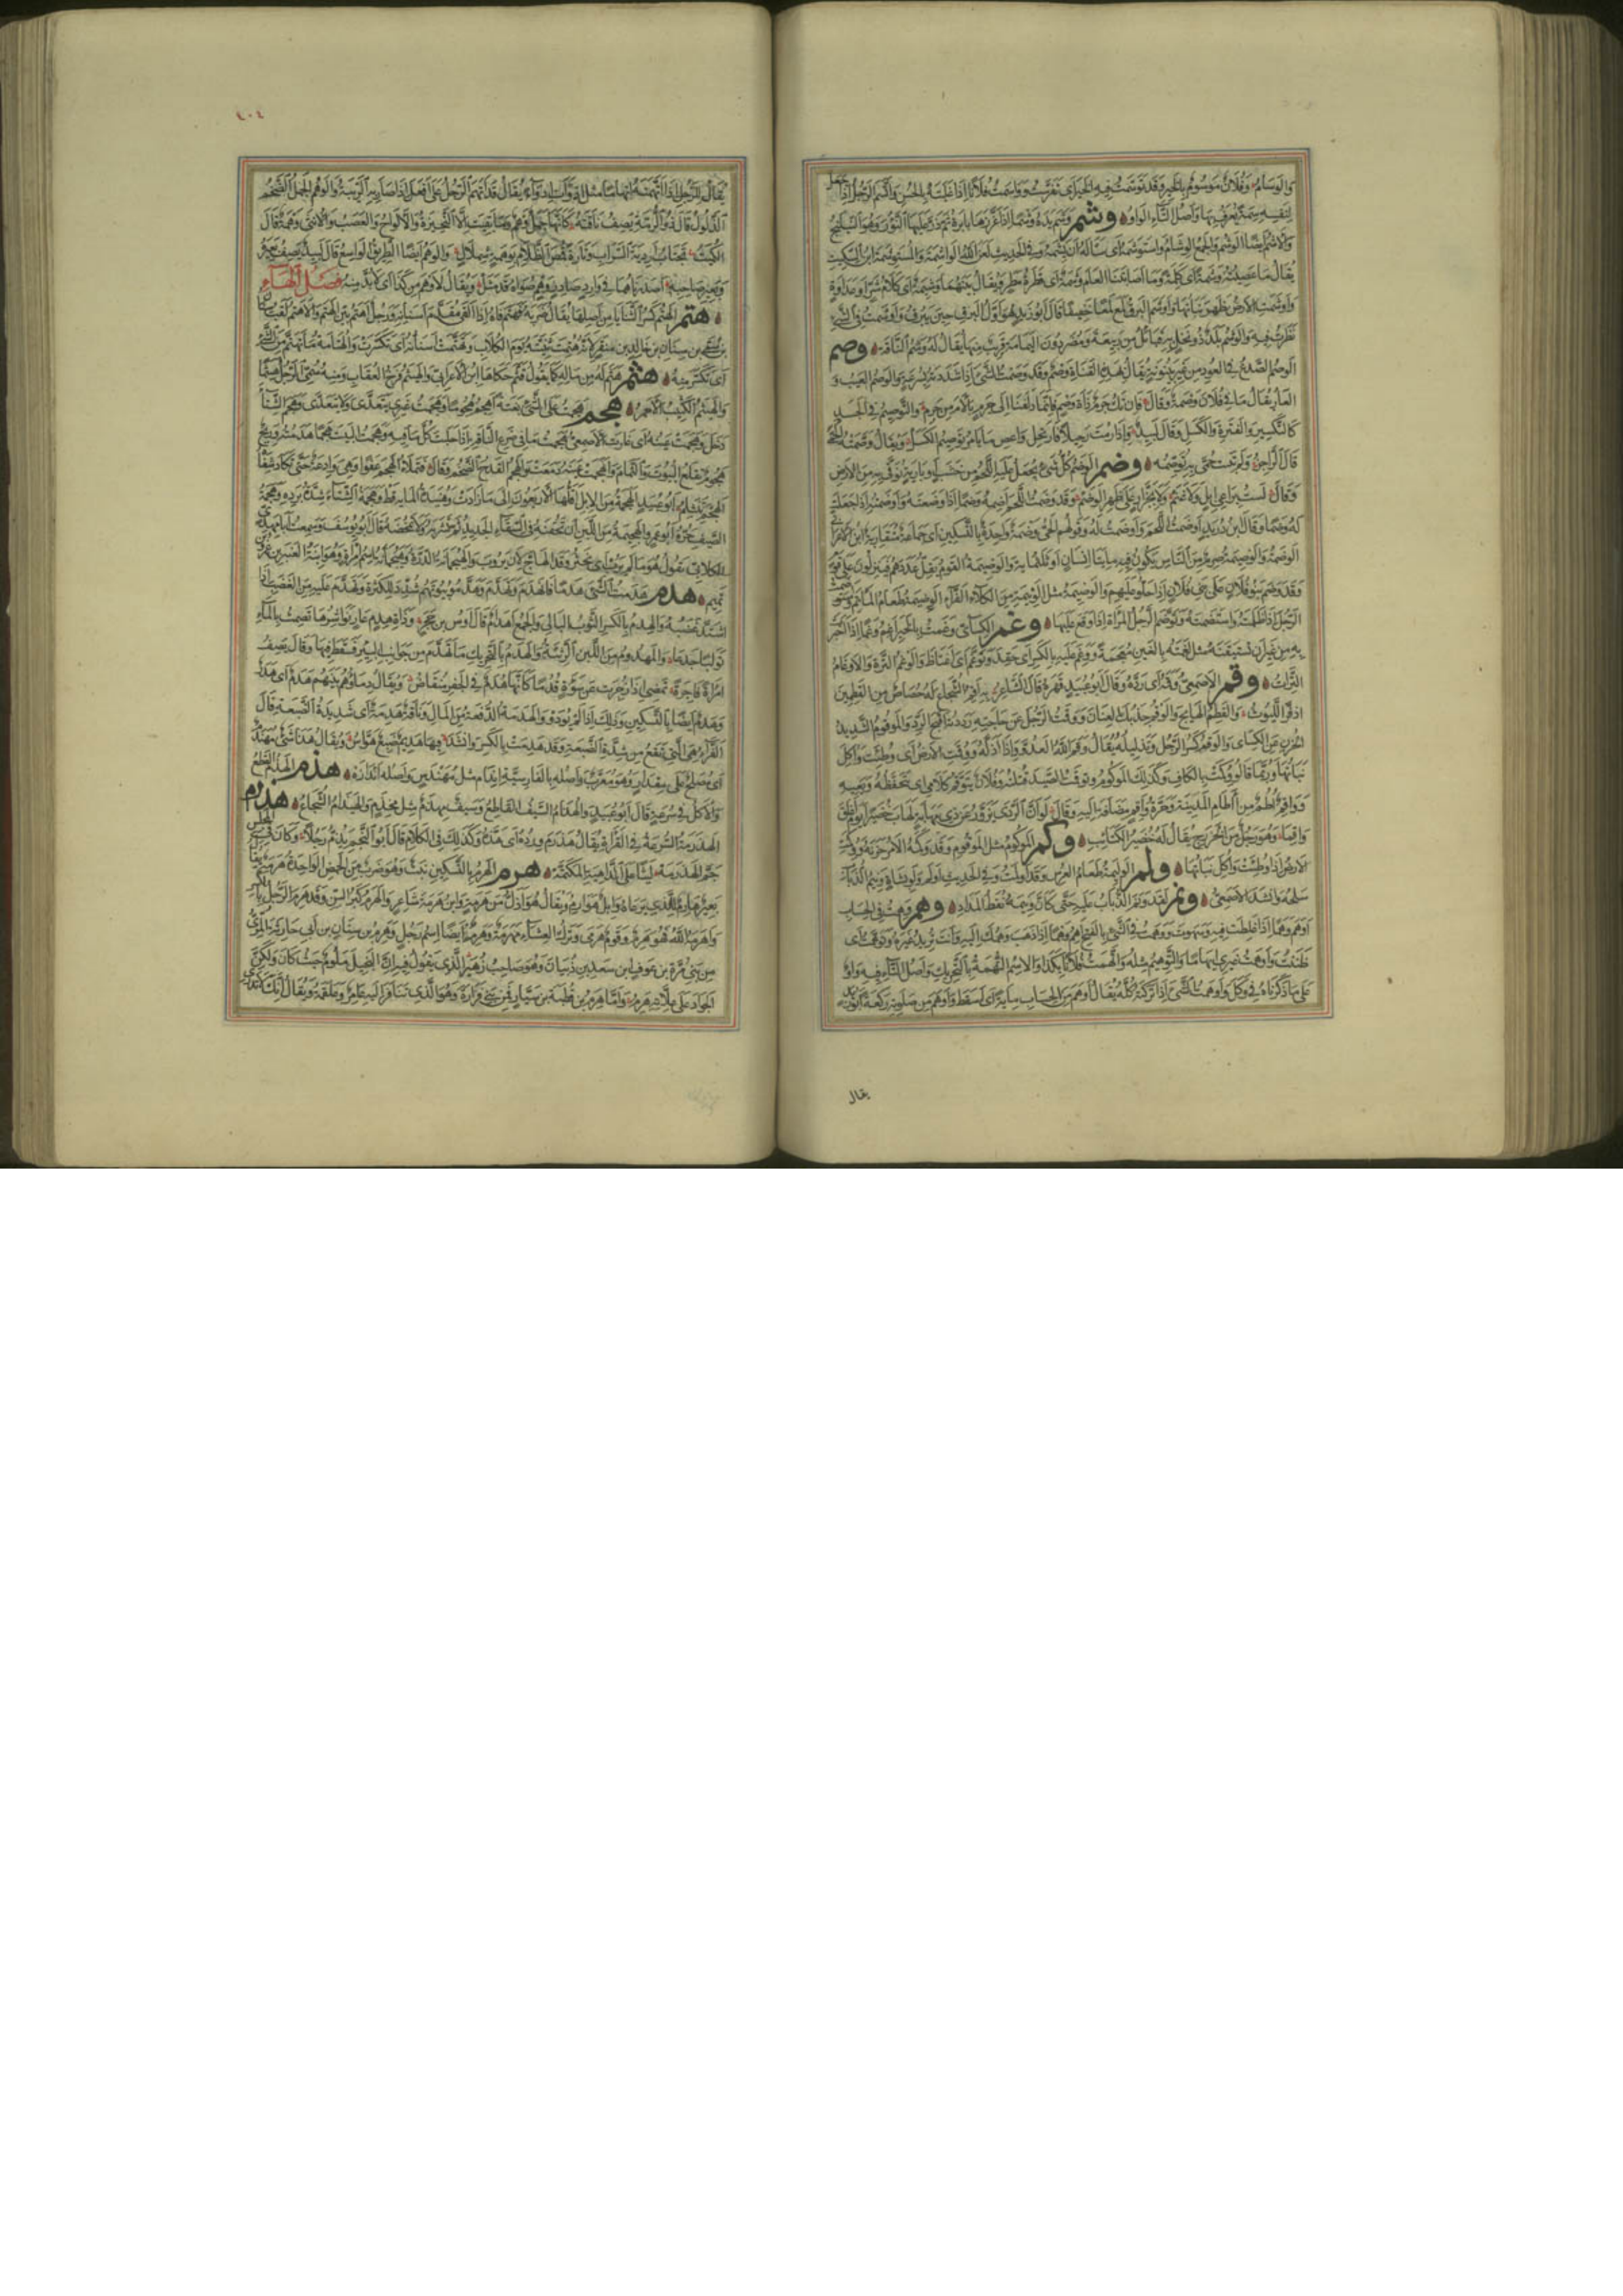 والوسامة وفلان موسوم بالخير وقد توسمت فيه الخير أي تفرست وواسمت فلانا إذا غلبته بالحسن واتسم الرجل إذا جعل
لنفسه سمة يعرف بها وأصل التاء الواو وشم وشم يده وشما إذا غرزها بابرة ثم ذر عليها النؤور وهو النيلج
والاسم أيضا الوشم والجمع الوشام واستوشمه أي سأله أن يشمه وفي الحديث لعن الله الواشمة والمستوشمة ابن السكيت
يقال ما عصيته وشمة أي كلمة وما أصابتنا العام وشمة أي قطرة مطر ويقال بينهما وشيمة أي كلام شر أو عداوة
وأوشمت الأرض ظهر نباتها وأوشم البرق لمع لمعا خفيفا قال أبو زيد هو أول البرق حين يبرق وأوشمت في الشيء
نظرت فيه والوشم بلد ذو نخل به قبائل من ربيعة ومضر دون اليمامة قريب منها يقال له وشم الناقة وصم
الوصم الصدع في العود من غير بينونة يقال بهذه القناة وصم وقد وصمت الشيء إذا شددته بسرعة والوصم العيب و
العار يقال ما في فلان وصمة وقال فإن تك جرم ذات وصم فإنما دلفنا إلى جرم بألأم من جرم والتوصيم في الجسد
كالتكسير والفترة والكسل وقال لبيد وإذا رمت رحيلا فارتحل واعص ما يأمر توصيم الكسل ويقال وصمته الحمى
قال الراجز ولم تبت حمى به توصمه وضم الوضم كل شيء يجعل عليه اللحم من خشب أو بارية يوقى به من الأرض
وقال لست براعي إبل ولا غنم ولا بجزار على ظهر الوضم وقد وضمت اللحم أضمه وضما إذا وضعته وأوضمته إذا جعلت
له وضما وقال ابن دريد أوضمت اللحم وأوضمت له وقولهم الحي وضمة واحدة بالتسكين أي جماعة متقاربة ابن الأعرابي
الوضمة والوضيمة صرم من الناس يكون فيه مايتا إنسان أو ثلثماية والوضيمة القوم يقل عددهم فينزلون على قوم
وقد وضم بنو فلان على بني فلان إذا حلوا عليهم والوضيمة مثل الوثيمة من الكلاء الفراء الوضيمة طعام المأتم واستوضمت
الرجل إذا ظلمته واستضمته وتوضم الرجل المرأة إذا وقع عليها وغم الكسائي وغمت بالخبر أغم وغما إذا أخبرت
به من غير أن تستيقنه مثل لغمت بالغين معجمة ووغم عليه بالكسر أي حقد وتوغم أي اغتاظ والوغم الترة والأوغام
الترات وقم الأصمعي وقمه أي رده وقال أبو عبيد قهره قال الشاعر به أقم الشجاع له حصاص من القطمين
إذ فر الليوث والقطم الهايج والوقم جذبك العنان ووقمت الرجل عن حاجته رددته أقبح الرد والموقوم الشديد
الحزن عن الكسائي والوقم كسر الرجل وتذليله يقال وقم الله العدو إذا أذله ووقمت الأرض أي وطئت وأكل
نباتها وربما قالوا وكمت بالكاف وكذلك الموكوم وتوقمت الصيد قتلته وفلان يتوقم كلامي أي يتحفظه ويعيه
وواقم أطم من آطام المدينة وحرة واقم مضافة إليه وقال لو أن الردى يزور عن ذي مهابة لهاب خضيرا يوم أغلق
واقما وهو رجل من الخزرج يقال له خضير الكتائب وكم الموكوم مثل الموقوم وقد وكمه الأمر حزنه ووكمت
الأرض إذا وطئت وأكل نباتها ولم الوليمة طعام العرس وقد أولمت وفي الحديث أولم ولو بشاة ونم ونيم الذباب
سلحه وأنشد الأصمعي ونم لقد ونم الذباب عليه حتى كأن ونيمه نقط المداد وهم وهمت في الحساب
أوهم وهما إذا غلطت فيه وسهوت ووهمت في الشيء بالفتح أهم وهما إذا ذهب وهمك إليه وأنت تريد غيره وتوهمت أي
ظننت وأوهمت غيري إيهاما والتوهيم مثله واتهمت فلانا بكذا والاسم التهمة بالتحريك وأصل التاء فيه واو
على ما ذكرناه في وكل وأوهمت الشيء إذا تركته كله يقال أوهم من الحساب ماية أي أسقط وأوهم من صلوته ركعة أبو زيد
يقال
٤٠٤
يقال للرجل إذا اتهمته إتهاما مثل أدوأت إدواء يقال قد أتهم الرجل على أفعل إذا صارت به الريبة والوهم الجمل الضخم
الذلول قال ذو الرمة يصف ناقته كأنها جمل وهم وما بقيت إلا النحيزة والألواح والعصب والأنثى وهمة قال
الكميت تجتاب أردية السراب وتارة قمص الظلام بوهمة شملال والوهم أيضا الطريق الواسع قال لبيد يصف بعيره
وبعير صاحبه ثم أصدرناهما في وارد صادر وهم صواه قد مثل ويقال لا وهم من كذا أي لا بد منه فصل الهاء
هتم الهتم كسر الثنايا من أصلها يقال ضربه فهتم فاه إذا ألقى مقدم أسنانه ورجل أهتم بين الهتم والأهتم لقب سنان
بن سمي بن سنان بن خالد بن منقر لأنه هتمت ثنيته يوم الكلاب وتهتمت أسنانه أي تكسرت والهتامة ما تهتم من الشيء
أي تكسر منه هثم هثم له من ماله كما يقول قثم حكاها ابن الأعرابي والهيثم فرخ العقاب ومنه سمي الرجل هيثما
والهيثم الكثيب الأحمر هجم هجمت على الشيء بغتة أهجم هجوما وهجمت غيري يتعدى ولا يتعدى وهجم الشتاء
دخل وهجمت عينه أي غارت الأصمعي هجمت ما في ضرع الناقة إذا حلبت كل ما فيه وهجمت البيت هجما هدمته وريح
هجوم تقلع البيوت والثمام وانهجمت عينه دمعت والهجم القدح الضخم وقال فتملأ الهجم عفوا وهي وادعة حتى تكاد شفاه
الهجم تنثلم أبو عبيد الهجمة من الإبل أولها الأربعون إلى ما زادت وهنيدة الماية فقط وهجمة الشتاء شدة برده وهجمة
الصيف حره أبو عمرو الهجيمة من اللبن أن تحقنه في السقاء الجديد ثم تشربه ولا تمخضه قال أبو يوسف وسمعت أبا مهدي
الكلابي يقول هو ما لم يرب أي يخثر وقد الهاج لأن يروب والهيجمانة الدرة وهيجمانة اسم امرأة وهي ابنة العنبر بن عمرو بن
تميم هدم هدمت الشيء هدما فانهدم وتهدم وهدموا بيوتهم شدد للكثرة وتهدم عليه من الغضب إذا
اشتد غضبه والهدم بالكسر الثوب البالي والجمع أهدام قال أوس بن حجر وذات هدم عار نواشرها تصمت بالماء
تولبا جدعا والمهدوم من اللبن الرثيئة والهدم بالتحريك ما تهدم من جوانب البير فسقط فيها وقال يصف
امرأة فاجرة تمضي إذا زجرت عن سوءة قدما كأنها هدم في الجفر منقاض ويقال دماؤهم بينهم هدم أي هدر
وهدم أيضا بالتسكين وذلك إذا لم يودوا والهدمة الدفعة من المال وناقة هدمة أي شديدة الضبعة قال
الفراء هي التي تقع من شدة الضبعة وقد هدمت بالكسر وأنشد فيها هديم ضبع هواس ويقال هذا شيء مهندم
أي مصلح على مقدار وهو معرب وأصله بالفارسية اندام مثل مهندس وأصله اندازه هذم الهذم القطع
والأكل في سرعة قال أبو عبيد والهذام السيف القاطع وسيف مهذم مثل مخذم والهيذام الشجاع هذرم
الهذرمة السرعة في القراءة يقال هذرم ورده أي هذه وكذلك في الكلام قال أبو النجم يذم رجلا وكان في المجلس
جم الهذرمه ليثا على الداهية المكتمه هرم الهرم بالتسكين نبت وهو ضرب من الحمض الواحدة هرمة يقال
بعير هارم للذي يرعاه وإبل هوارم ويقال هو أذل من هرمة وابن هرمة شاعر والهرم كبر السن وقد هرم الرجل بالكسر
وأهرمه الله فهو هرم وقوم هرمى وترك العشاء مهرمة وهرم أيضا اسم رجل وهرم بن سنان بن أبي حارثة المري
من بني مرة بن عوف بن سعد بن ذبيان وهو صاحب زهير الذي يقول فيه إن البخيل ملوم حيث كان ولكن
الجواد على علاته هرم وأما هرم بن قطبة بن سيار فمن بني فزارة وهو الذي تنافر إليه عامر وعلقمة ويقال إنك لا تدري